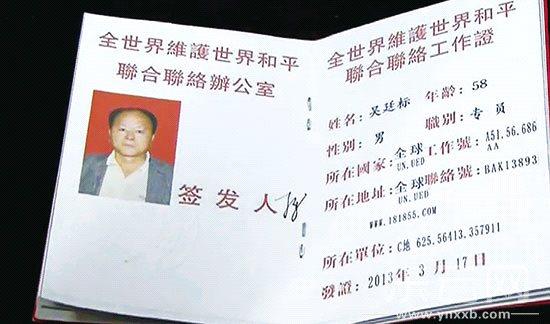 全世界維護世界和平
聯合聯絡辦公室
签发人
全世界維護世界和平
聯合聯絡工作證
姓名:吴廷标 年齡:58
性别:男 職别:专员
所在國家:全球 工作號:A51.56.686
UN.UED AA
所在地址:全球 聯絡號:BAK13893
UN.UED
WWW.181855.COM
所在單位:C地 625.56413.357911
發證:2013年3月17日
www.ynxxb.com